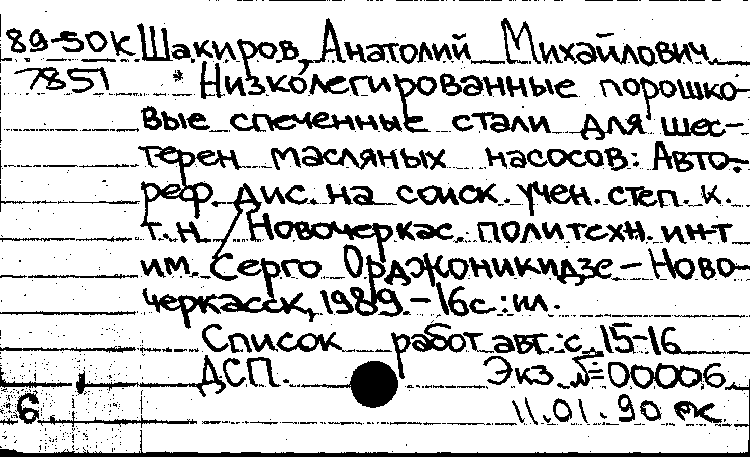 89-50к Шакиров, Анатолий Михайлович.
7851 * Низколегированные порошко-
вые спеченные стали для шес-
терен масляных насосов: Авто-
реф. дис. на соиск. учен. степ. к.
т.н. / Новочеркас. политехн. ин-т
им. Серго Орджоникидзе - Ново-
черкасск, 1989. - 16с.: ил.
Список работ авт.: с. 15-16
ДСП. Экз. №00006
6. 11.01.90